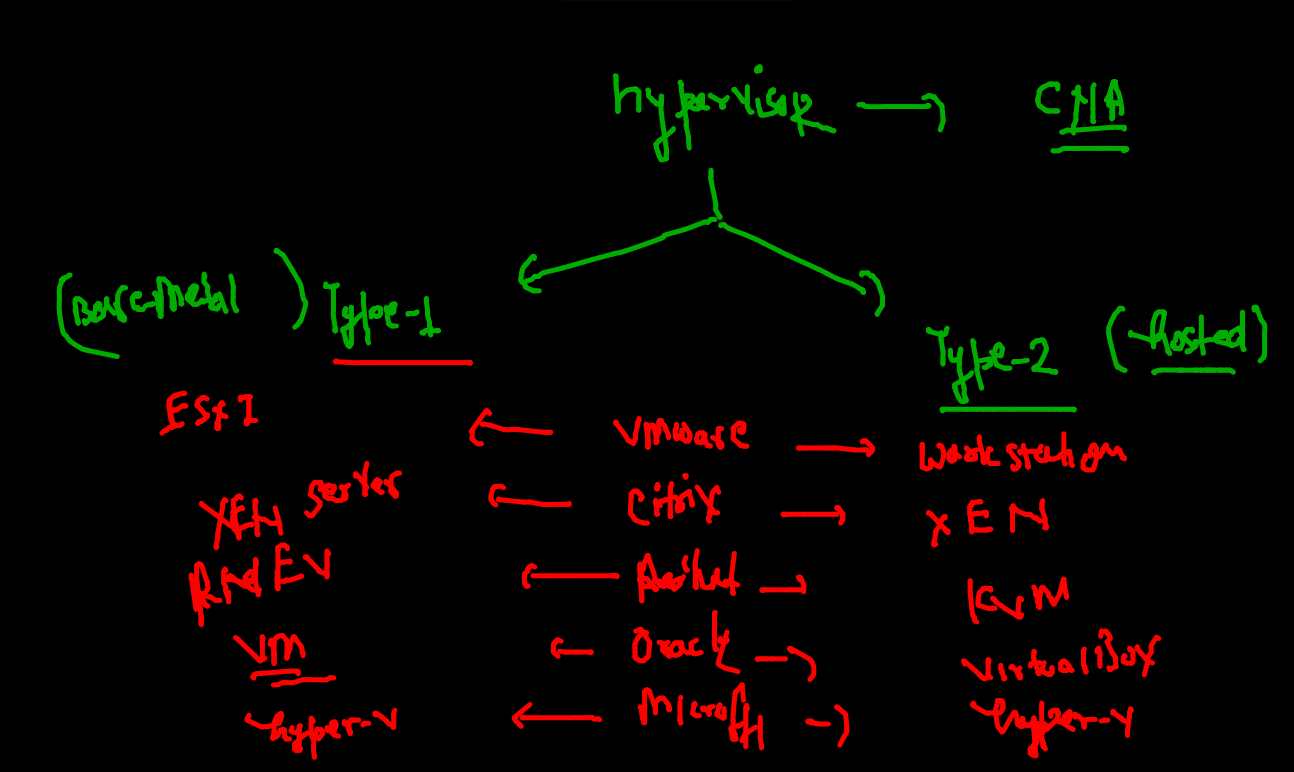 hypervisor → CNA
(Bare-Metal) Type-1
Type-2 (hosted)
ESXI ← VMware → Workstation
XEN server ← Citrix → XEN
← →  KVM
VM ← Oracle → VirtualBox
hyper-v ← → hyper-v